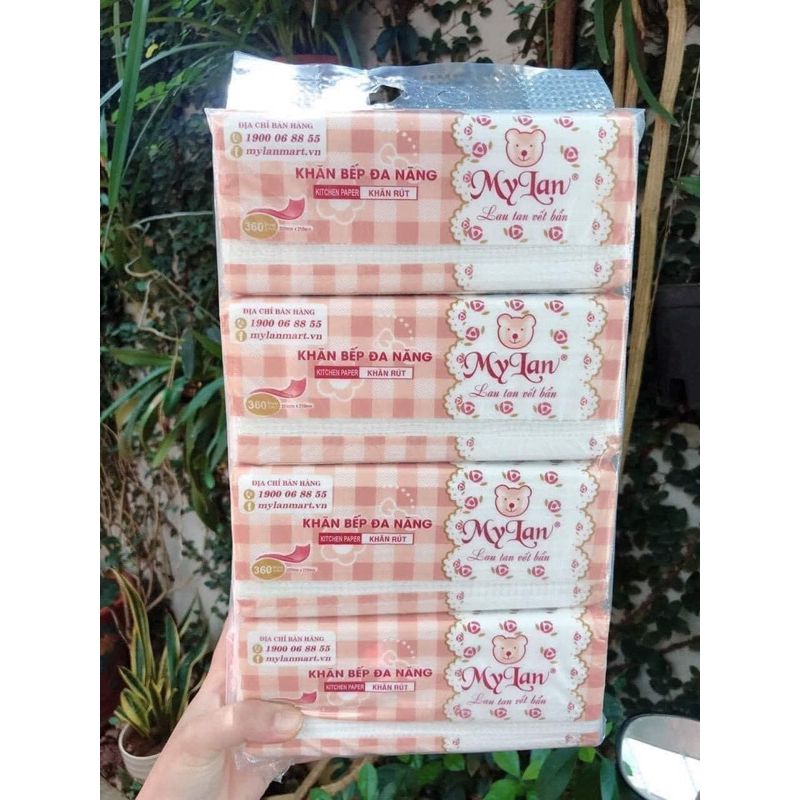 ĐỊA CHỈ BÁN HÀNG
1900 06 88 55
mylanmart.vn
KHĂN BẾP ĐA NĂNG
KITCHEN PAPER KHĂN RÚT
360
MyLan®
Lau tan vết bẩn
ĐỊA CHỈ BÁN HÀNG
1900 06 88 55
mylanmart.vn
KHĂN BẾP ĐA NĂNG
KITCHEN PAPER KHĂN RÚT
360
MyLan®
Lau tan vết bẩn
ĐỊA CHỈ BÁN HÀNG
1900 06 88 55
mylanmart.vn
KHĂN BẾP ĐA NĂNG
KITCHEN PAPER KHĂN RÚT
360
MyLan®
Lau tan vết bẩn
ĐỊA CHỈ BÁN HÀNG
1900 06 88 55
mylanmart.vn
KHĂN BẾP ĐA NĂNG
KITCHEN PAPER KHĂN RÚT
MyLan®
Lau tan vết bẩn